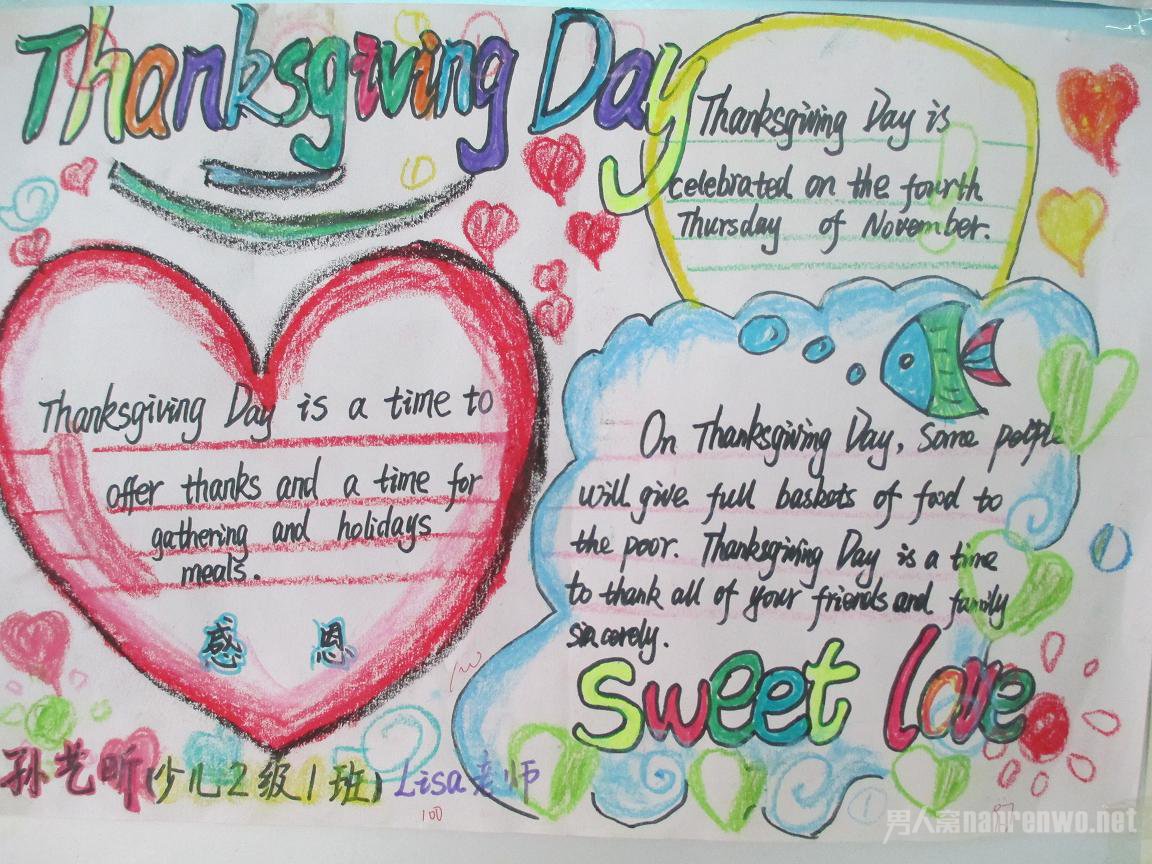 Thanksgiving Day
Thanksgiving Day is
celebrated on the fourth
Thursday of November.
Thanksgiving Day is a time to
offer thanks and a time for
gathering and holidays
meals.
感 恩
On Thanksgiving Day, some people
will give full baskets of food to
the poor. Thanksgiving Day is a time
to thank all of your friends and family
sincerely.
sweet love
孙艺昕(少儿2级1班) Lisa老师
100
男人窝nanrenwo.net